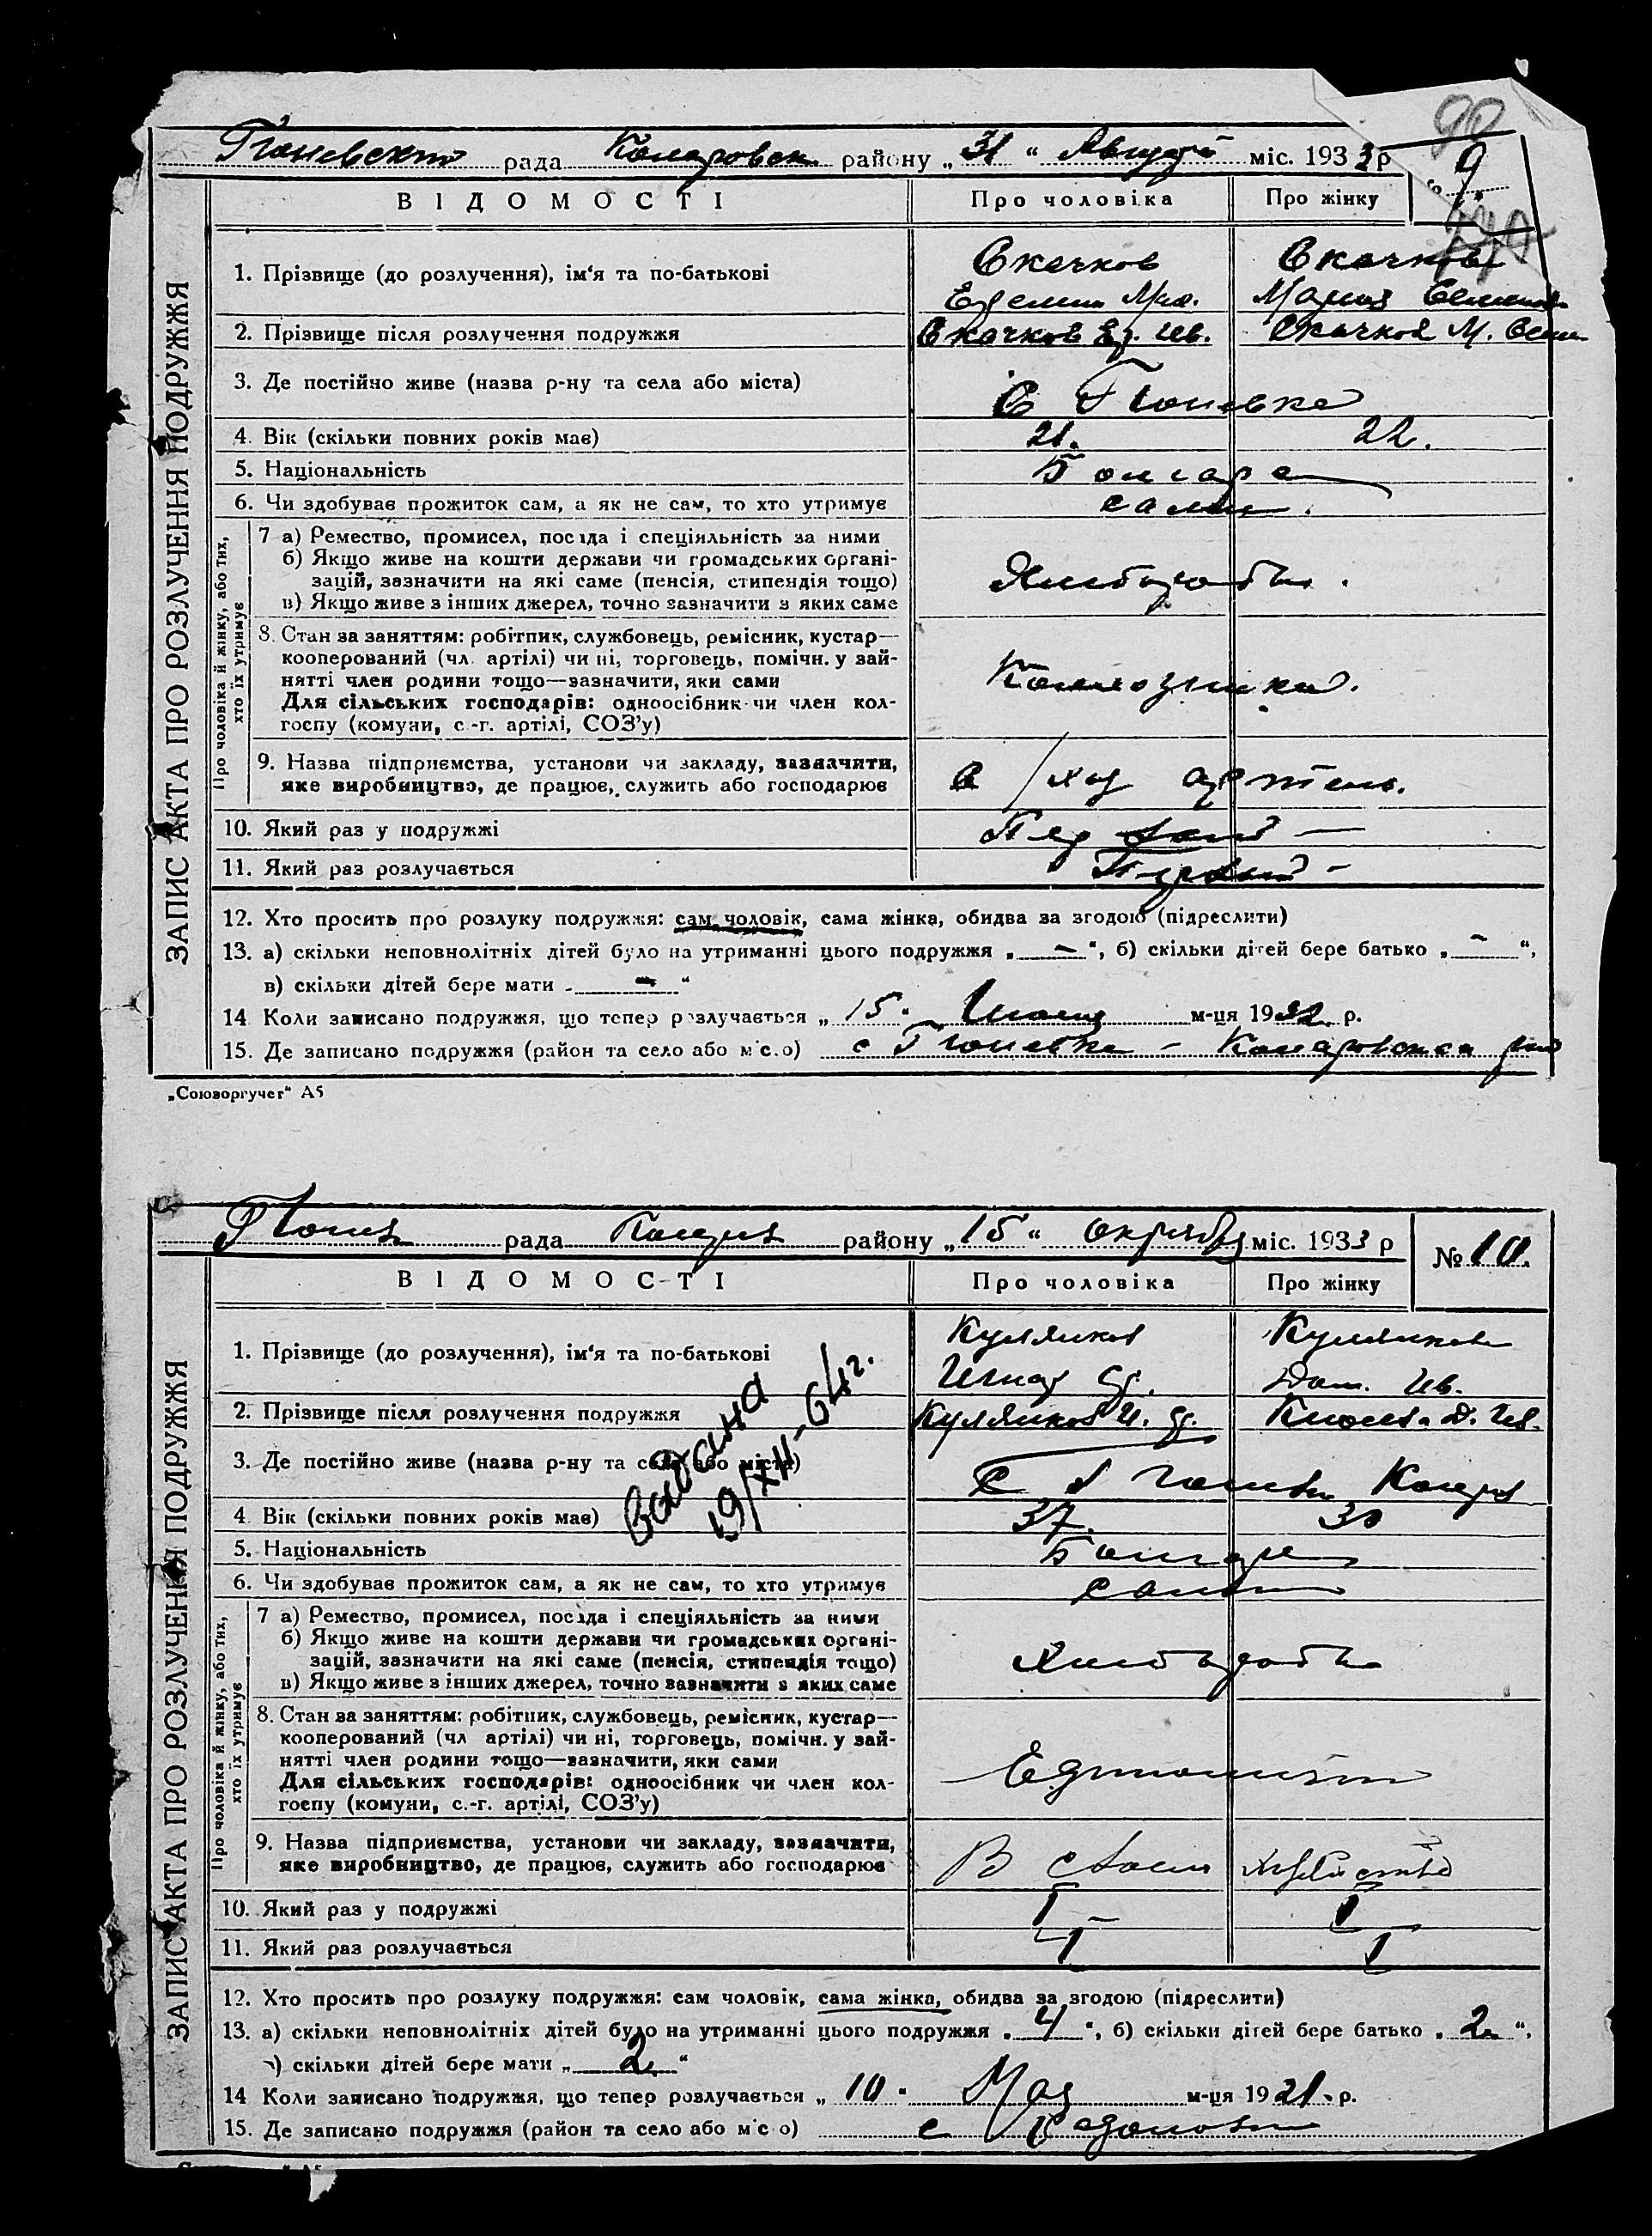 рада район у „ 31 “ Август міс. 1933 р
9
В І Д О М О С Т І Про чоловіка Про жінку
ЗАПИС АКТА ПРО РОЗЛУЧЕННЯ ПОДРУЖЖЯ
1. Прізвище (до розлучення), ім‘я та по-батькові Скачков Скачкова
Мария
2. Прізвище після розлучення подружжя Скачков Ив. Скачков М.
3. Де постійно живе (назва р-ну та села або міста) С Гюневка
4. Вік (скільки повних років має) 21. 22.
5. Національність Болгаре
6. Чи здобуває прожиток сам, а як не сам, то хто утримує сами.
Про чоловіка й жінку, або тих, хто їх утримує
7 а) Ремество, промисел, посада і спеціяльність за ними
б) Якщо живе на кошти держави чи громадських органі-
зацій, зазначити на які саме (пенсія, стипендія тощо)
в) Якщо живе з інших джерел, точно зазначити з яких саме
8. Стан за заняттям: робітник, службовець, ремісник, кустар—
кооперований (чл. артілі) чи ні, торговець, помічн. у зай-
нятті член родини тощо—зазначити, яки сами
Для сільських господарів: одноосібник чи член кол-
госпу (комуни, с.-г. артілі, СОЗ’у)
9. Назва підприємства, установи чи закладу, зазначити,
яке виробництво, де працює, служить або господарює артель.
10. Який раз у подружжі Первый —
11. Який раз розлучається Первый —
12. Хто просить про розлуку подружжя: сам чоловік, сама жінка, обидва за згодою (підреслити)
13. а) скільки неповнолітніх дітей було на утриманні цього подружжя „ — “, б) скільки дітей бере батько „ — “,
в) скільки дітей бере мати „ — “
14 Коли записано подружжя, що тепер розлучається „ 15 “ м-ця 1932 р.
15. Де записано подружжя (район та село або місто) с Гюневка – Коларовского
„Союзоргучет“ А5
рада району „ 15 “ Октября міс. 1933 р № 10.
В І Д О М О С Т І Про чоловіка Про жінку
ЗАПИС АКТА ПРО РОЗЛУЧЕННЯ ПОДРУЖЖЯ
1. Прізвище (до розлучення), ім‘я та по-батькові
Ив.
2. Прізвище після розлучення подружжя
3. Де постійно живе (назва р-ну та села або міста)
4. Вік (скільки повних років має) 37. 30
5. Національність Болгаре
6. Чи здобуває прожиток сам, а як не сам, то хто утримує сами
Видана
19/XII–64г.
Про чоловіка й жінку, або тих, хто їх утримує
7 а) Ремество, промисел, посада і спеціяльність за ними
б) Якщо живе на кошти держави чи громадських органі-
зацій, зазначити на які саме (пенсія, стипендія тощо)
в) Якщо живе з інших джерел, точно зазначити з яких саме
8. Стан за заняттям: робітник, службовець, ремісник, кустар—
кооперований (чл артілі) чи ні, торговець, помічн. у зай-
нятті член родини тощо—зазначити, яки сами
Для сільських господарів: одноосібник чи член кол-
госпу (комуни, с.-г. артілі, СОЗ’у)
9. Назва підприємства, установи чи закладу, зазначити,
яке виробництво, де працює, служить або господарює В своем
10. Який раз у подружжі I I
11. Який раз розлучається I I
12. Хто просить про розлуку подружжя: сам чоловік, сама жінка, обидва за згодою (підреслити)
13. а) скільки неповнолітніх дітей було на утриманні цього подружжя „ 4 “, б) скільки дітей бере батько „ 2 “,
в) скільки дітей бере мати „ 2 “
14 Коли записано подружжя, що тепер розлучається „ 10 “ Мая м-ця 1921 р.
15. Де записано подружжя (район та село або місто) с